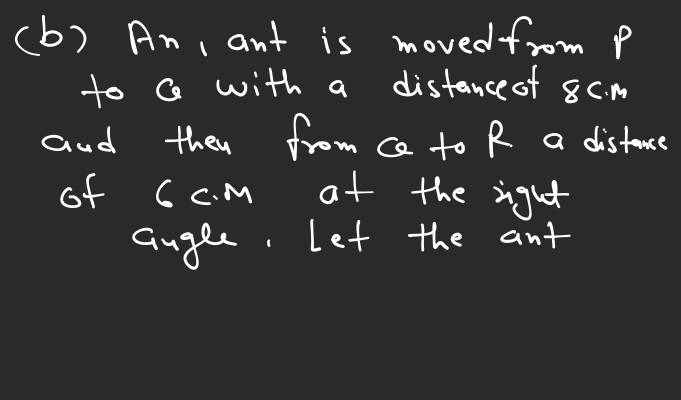 (b) An, ant is moved from P
to Q with a distance of 8 C.M
and then from Q to R a distance
of 6 C.M at the right
angle. Let the ant